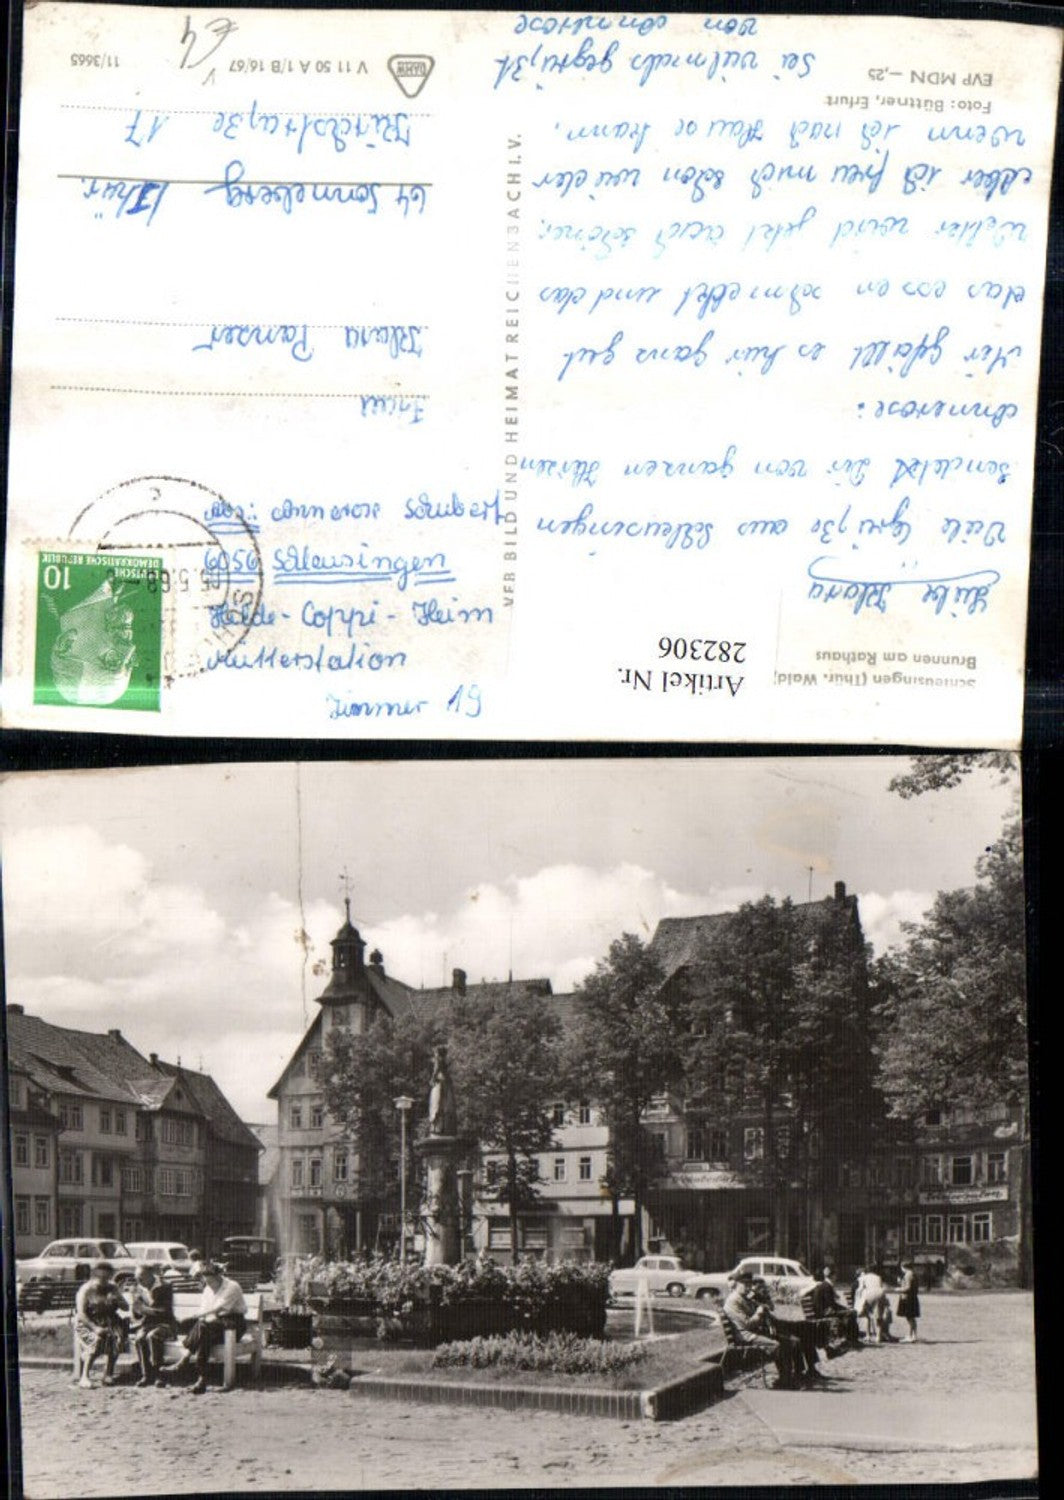 Schleusingen (Thür. Wald)
Brunnen am Rathaus
Artikel Nr.
282306
Liebe Klara
Viele Grüße aus Schleusingen
sendet Dir von ganzen Herzen
Annerose:
Mir gefällt es hier ganz gut
das essen schmeckt und das
Wetter wird jetzt auch schöner.
Aber ich freu mich schon wieder
wenn ich nach Hause kann.
Sei vielmals gegrüßt
von Annerose
Foto: Büttner, Erfurt
EVP MDN –,25
VEB BILD UND HEIMAT REICHENBACH I. V.
Zimmer 19
Mütterstation
Hilde-Coppi-Heim
6056 Schleusingen
DEUTSCHE
DEMOKRATISCHE REPUBLIK
10
05.5.68
Frau
Klara Panzer
64 Sonneberg Thür.
Kirchstraße 17
V 11 50 A 1/B 16/67
11/3665
€4